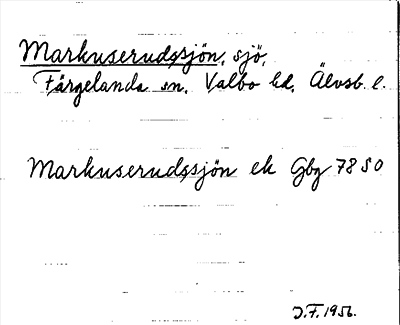 Markuserudssjön, sjö,
Färgelanda sn, Valbo hd, Älvsb. l.
Markuserudssjön ek Gbg 78 SO
J.F. 1956.